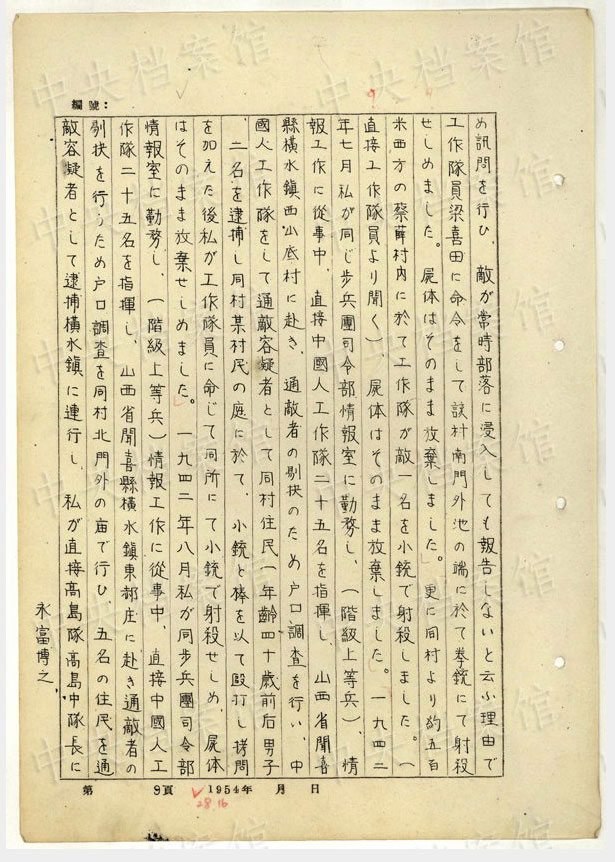 編號：
め訊問を行ひ、敵が常時部落に浸入しても報告しないと云ふ理由で
工作隊員梁喜田に命令をして該村南門外池の端に於て拳銃にて射殺
せしめました。屍体はそのまま放棄しました。更に同村より約五百
米西方の蔡薛村内に於て工作隊が敵一名を小銃で射殺しました。（
直接工作隊員より聞く）、屍体はそのまま放棄しました。一九四二
年七月私が同じ步兵團司令部情報室に勤務し、（階級上等兵）、情
報工作に從事中、直接中國人工作隊二十五名を指揮し、山西省聞喜
縣橫水鎭西山底村に赴き、通敵者の剔抉のため户口調査を行い、中
國人工作隊をして通敵容疑者として同村住民（年齡四十歳前后男子
二名を逮捕し同村某村民の庭に於て、小銃と棒を以て毆打し拷問
を加えた後私が工作隊員に命じて同所にて小銃で射殺せしめ、屍体
はそのまま放棄せしめました。一九四二年八月私が同步兵團司令部
情報室に勤務し、（階級上等兵）情報工作に從事中、直接中國人工
作隊二十五名を指揮し、山西省聞喜縣橫水鎭東郝庄に赴き通敵者の
剔抉を行うため户口調査を同村北門外の庙で行ひ、五名の住民を通
敵容疑者として逮捕橫水鎭に連行し、私が直接高島隊高島中隊長に
永富博之
第 9頁 1954年 月 日
中央档案馆